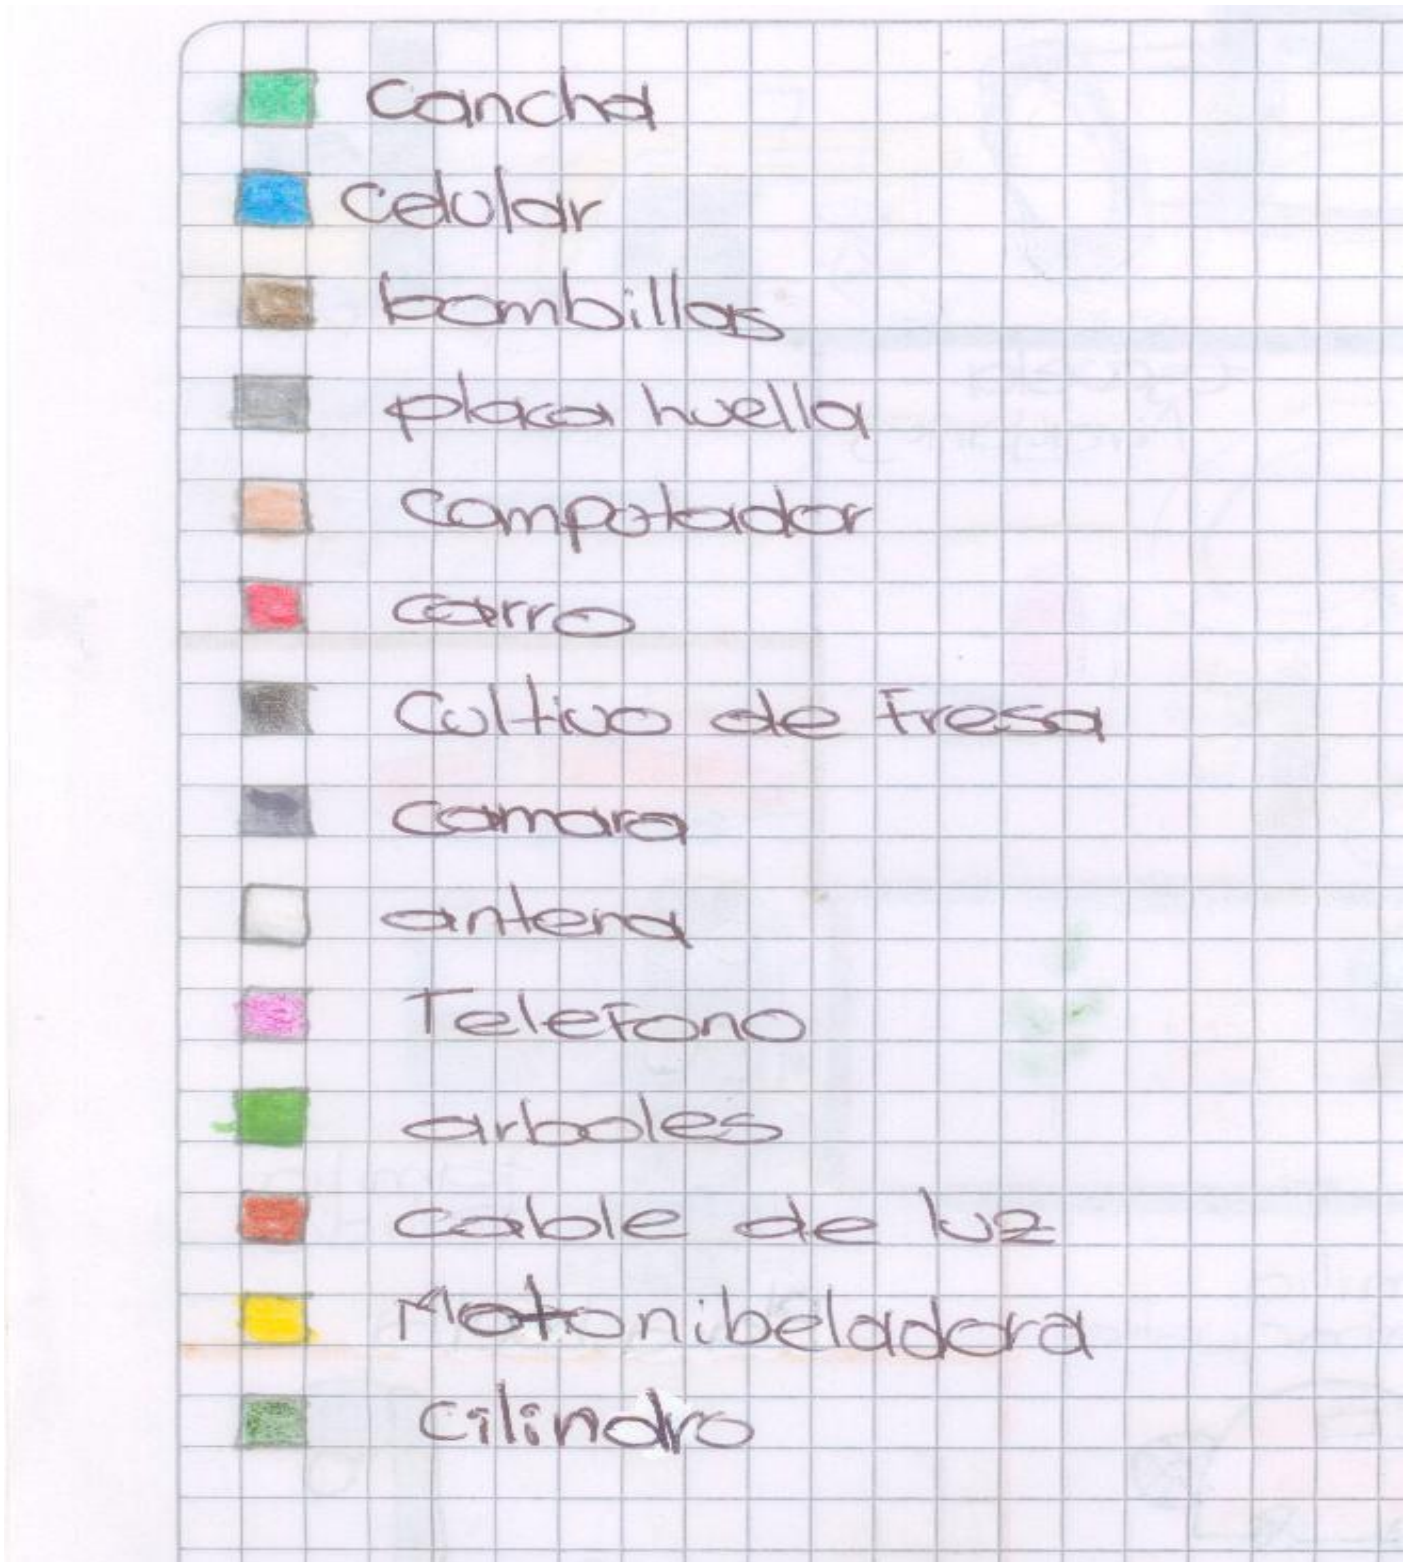 Cancha
Celular
bombillas
placa huella
Computador
carro
Cultivo de Fresa
camara
antena
Telefono
arboles
cable de luz
Motonibeladora
Cilindro